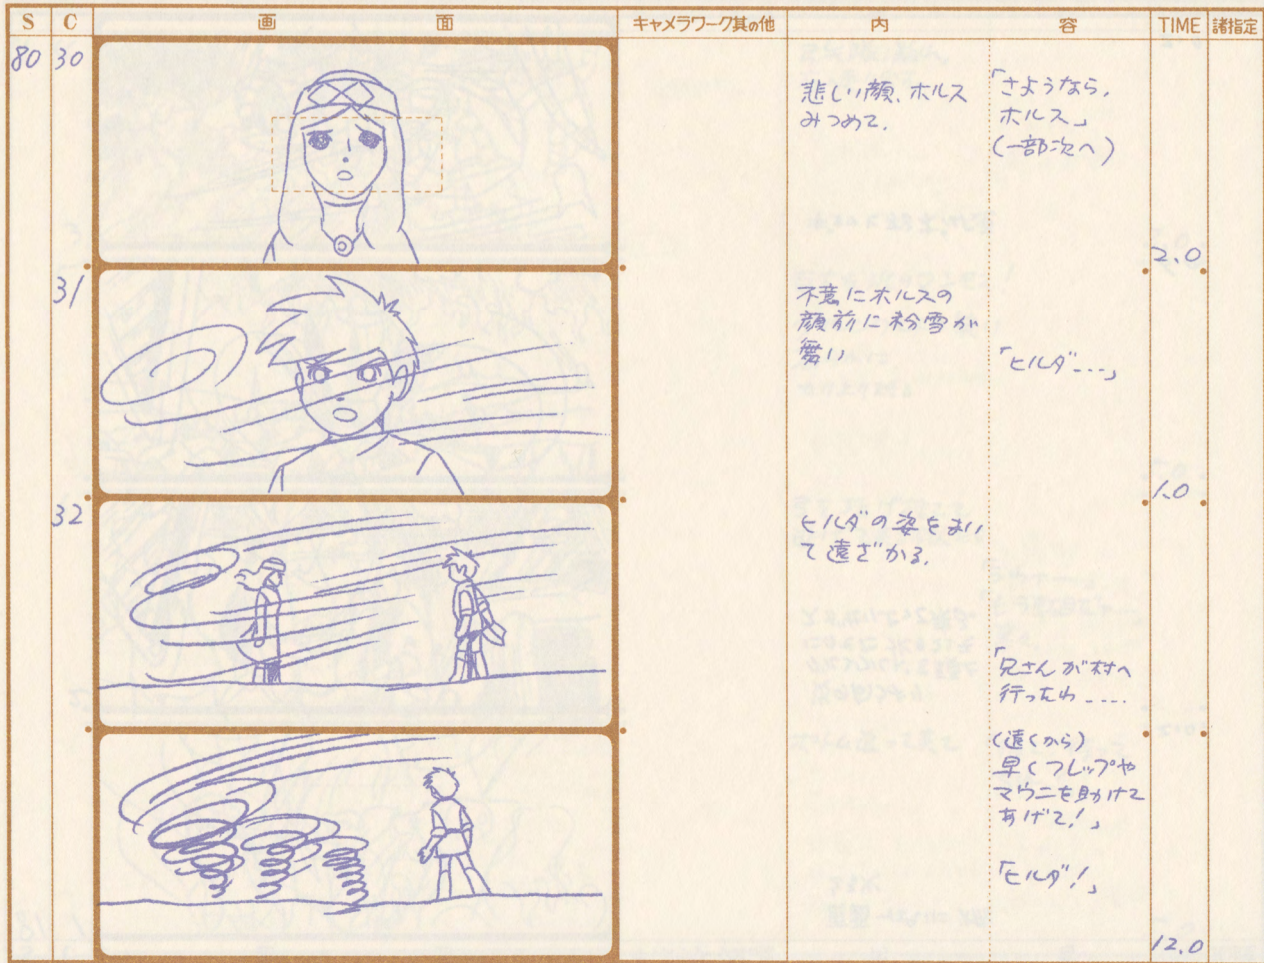 S C 画面 キャメラワーク其の他 内容 TIME 諸指定
80 30
悲しい顔、ホルス
みつめて.
「さようなら.
ホルス」
(一部次へ)
2.0
31
不意にホルスの
顔前に粉雪が
舞い
「ヒルダ---」
1.0
32
ヒルダの姿をおい
て遠ざかる.
「兄さんが村へ
行ったわ-----
(遠くから)
早くフレップや
マウニを助けて
あげて!」
「ヒルダ!」
12.0